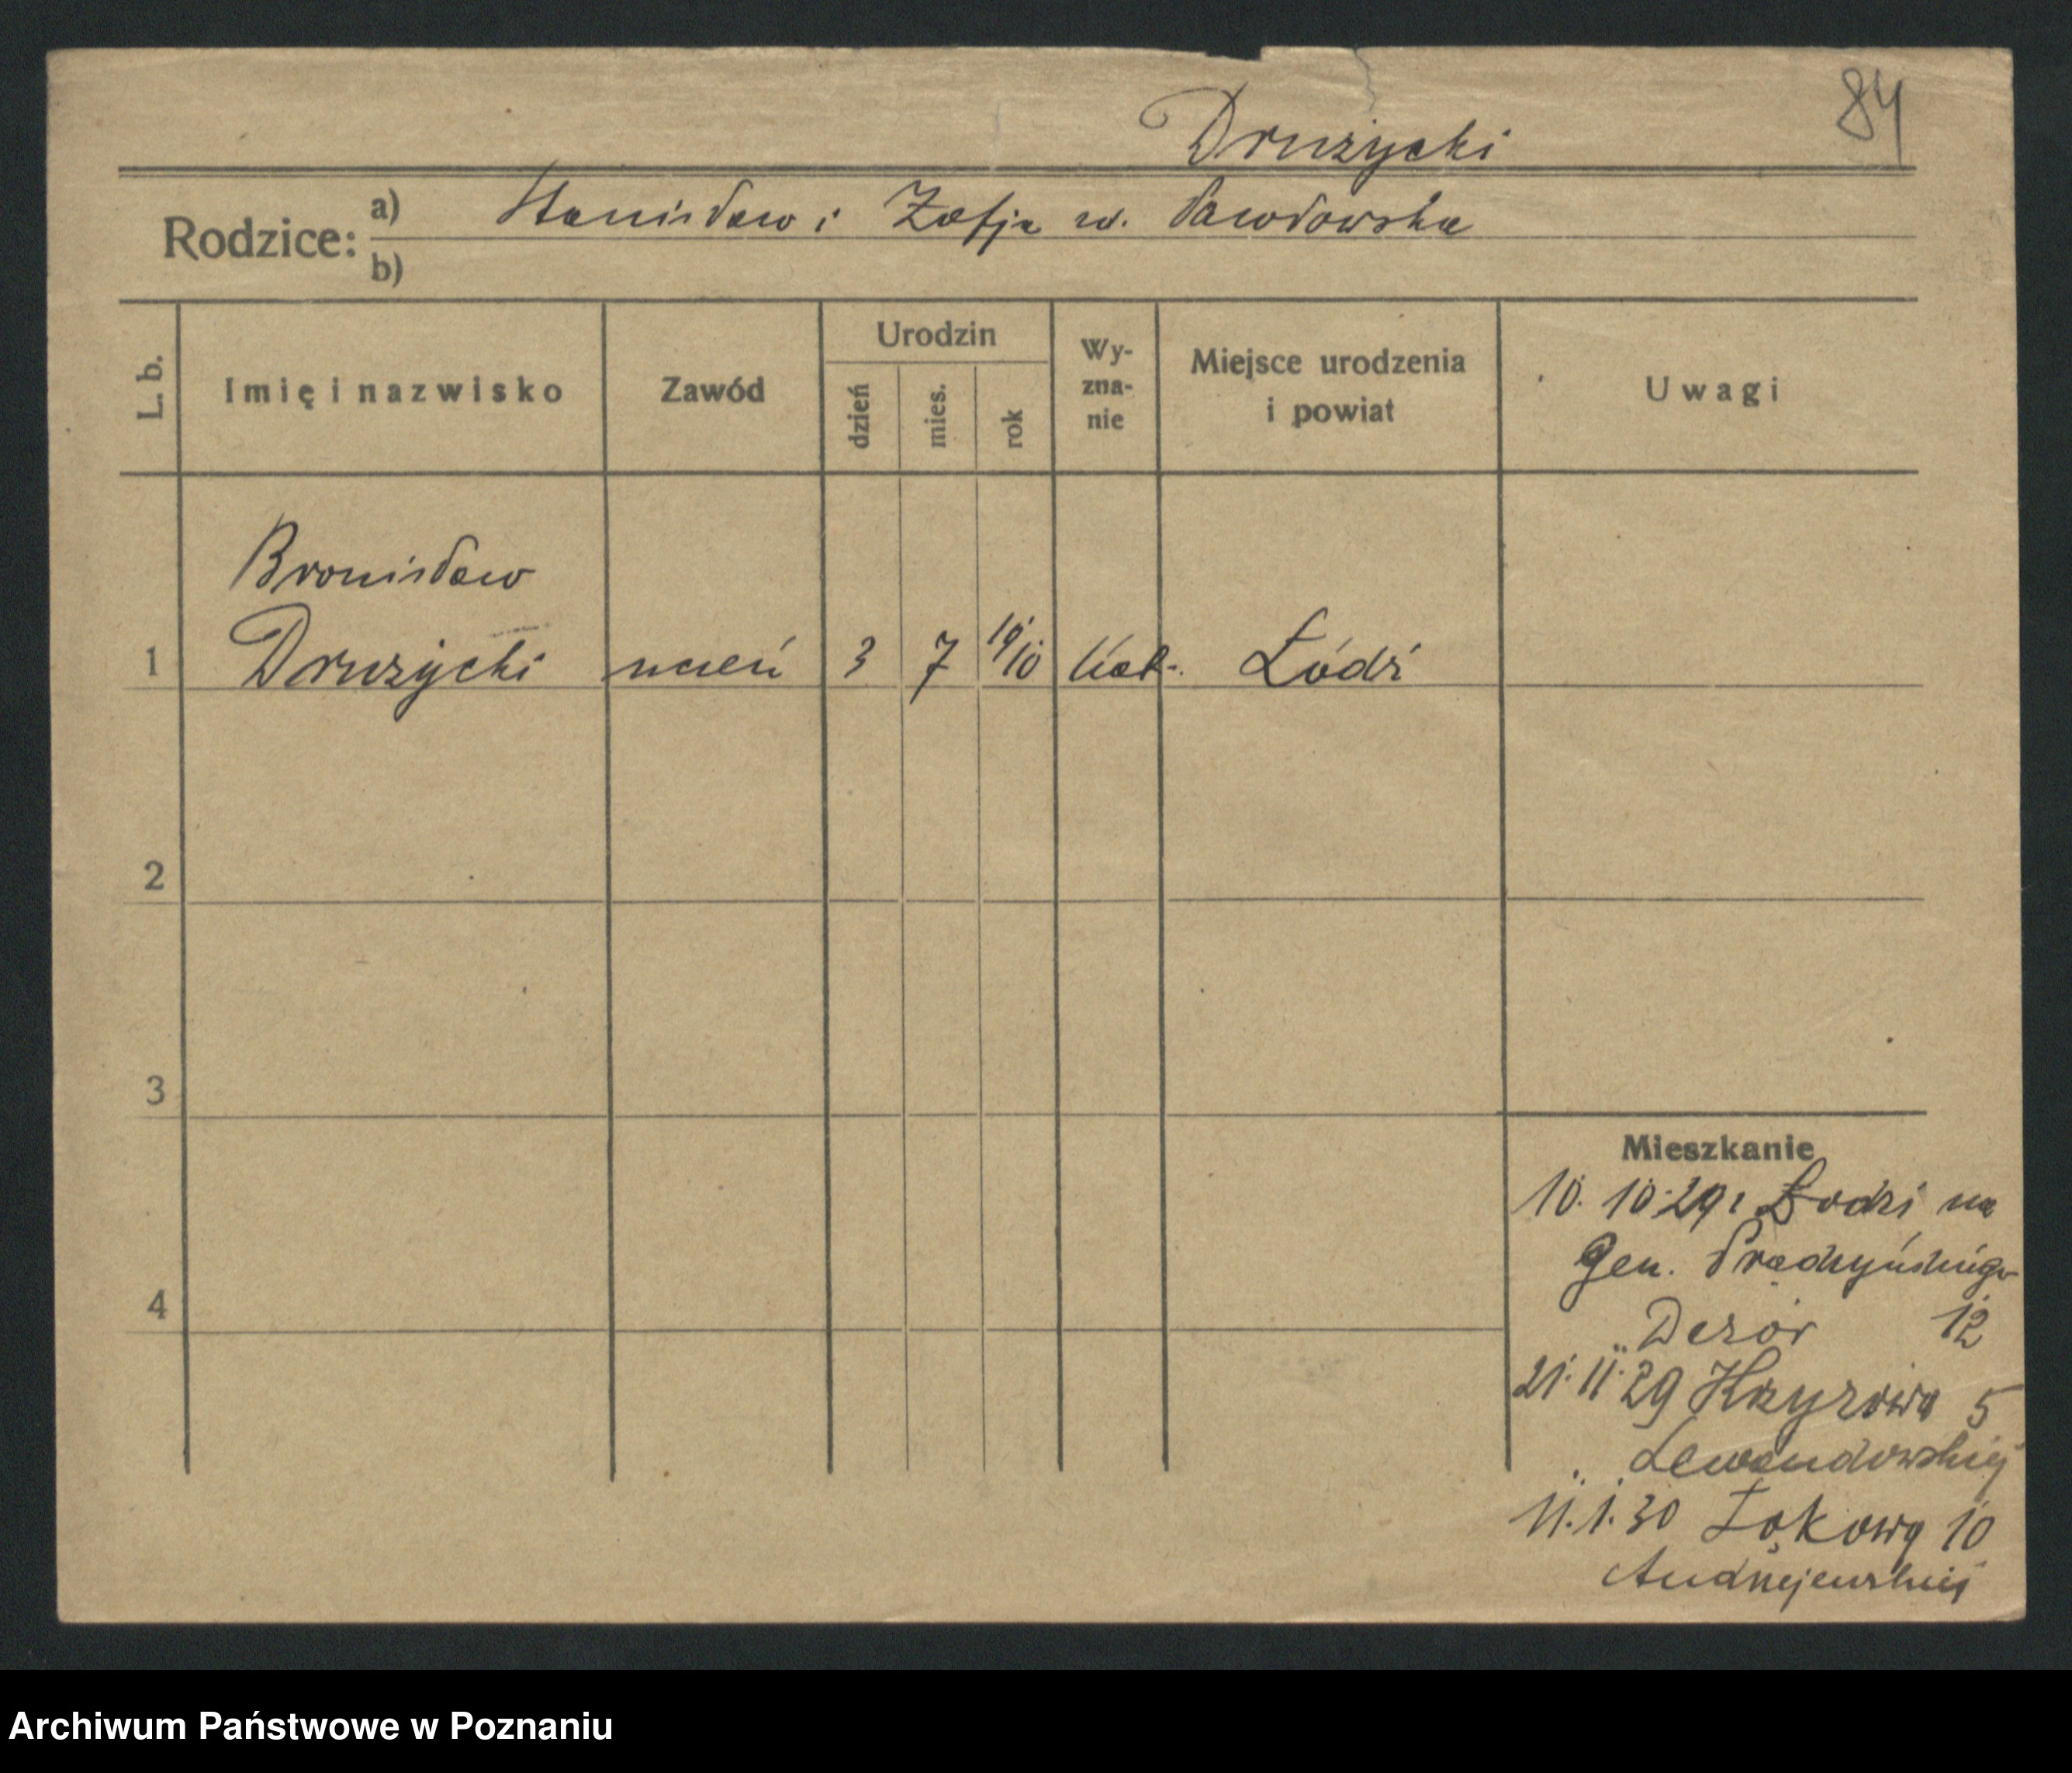 84
Drużycki
Rodzice: a) Stanisław i Zofja u. Pawłowska
b)
L. b.
Imię i nazwisko
Zawód
Urodzin
dzień
mies.
rok
Wy-
zna-
nie
Miejsce urodzenia
i powiat
Uwagi
Bronisław
1 Drużycki uczeń 3 7 19/10 kat. Łódź
2
3
4
Mieszkanie
10.10.29 z Łodzi na
Gen. Prądzyńskiego
12
21.11.29 Krzyżowa 5
Lewandowskiej
11.1.30 Łąkowa 10
Andrzejewskiej
Archiwum Państwowe w Poznaniu